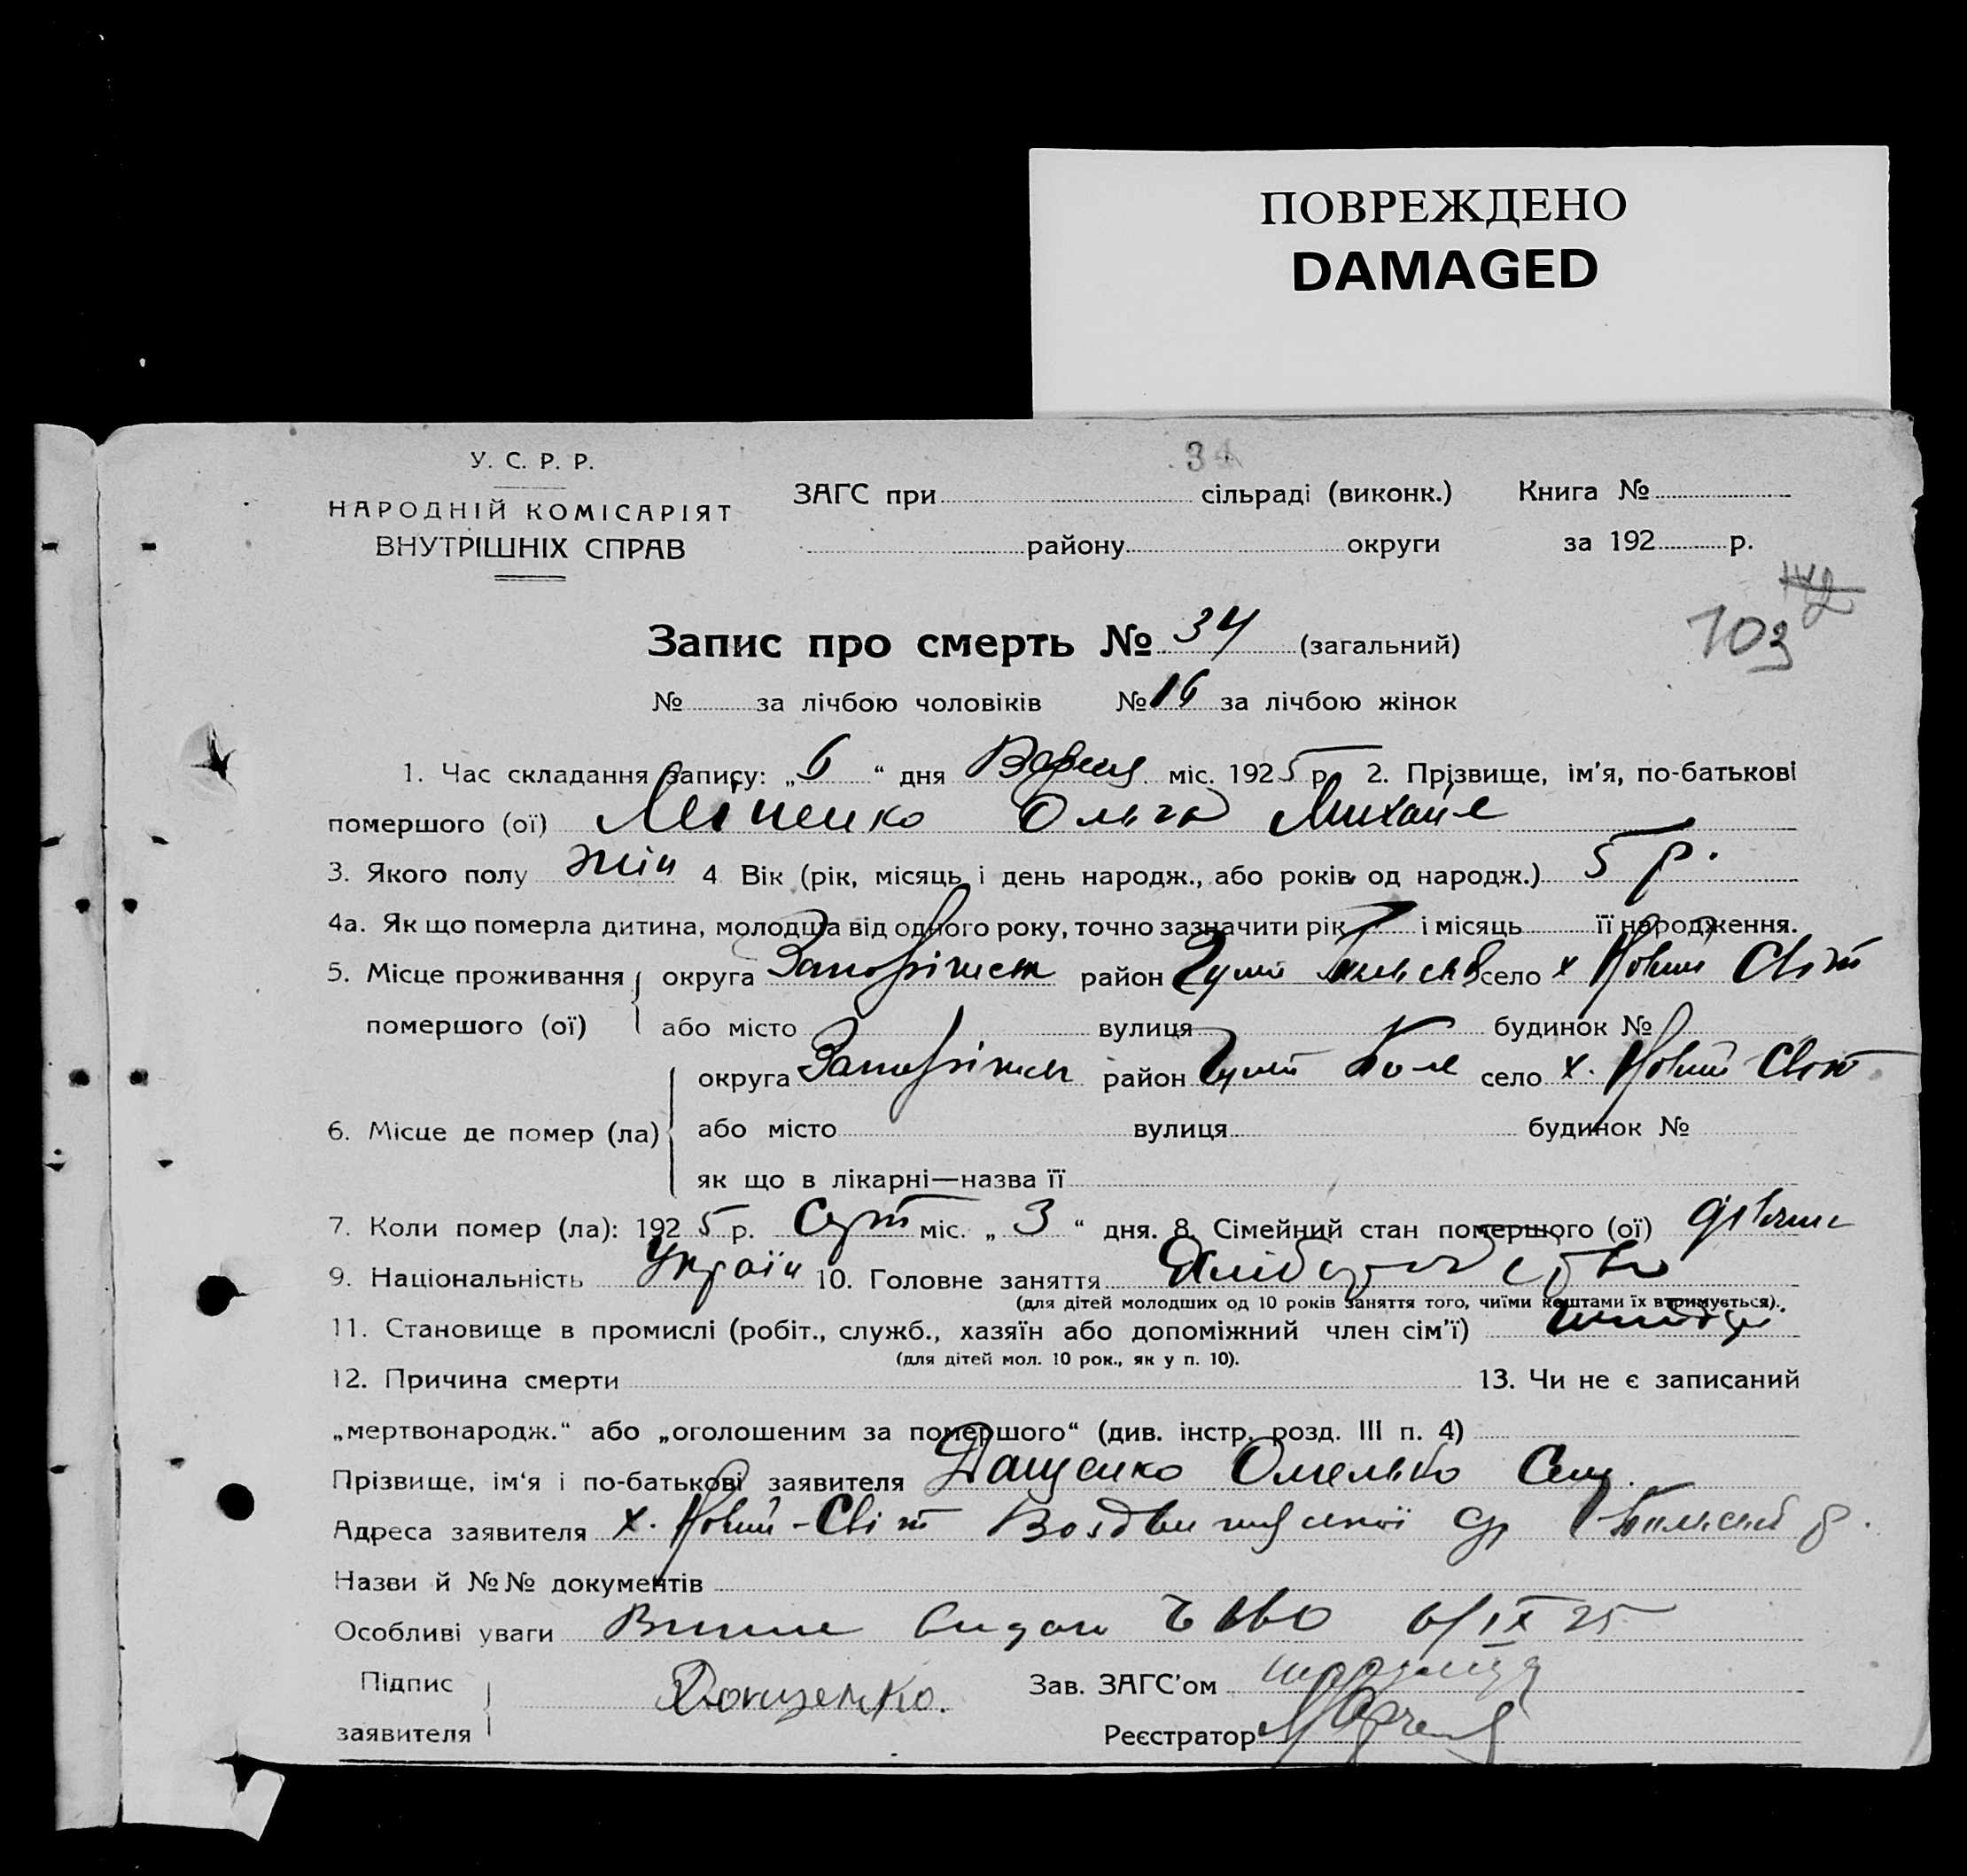 ПОВРЕЖДЕНО
DAMAGED
У. С. Р. Р.
НАРОДНІЙ КОМІСАРІЯТ
ВНУТРІШНІХ СПРАВ
34
ЗАГС при сільраді (виконк.) Книга №
району округи за 192 р.
103
Запис про смерть № 34 (загальний)
№ за лічбою чоловіків № 16 за лічбою жінок
1. Час складання запису: „6“ дня Верес міс. 1925 р. 2. Прізвище, ім'я, по-батькові
помершого (ої) Ольга Михайл
3. Якого полу жін 4 Вік (рік, місяць і день народж., або років од народж.) 5 р.
4а. Як що померла дитина, молодша від одного року, точно зазначити рік і місяць її народження.
5. Місце проживання округа Запоріжськ район Гуляй село х Новий Світ
помершого (ої) або місто вулиця будинок №
округа Запоріжськ район Гуляй Поле село х. Новий Світ
6. Місце де помер (ла) або місто вулиця будинок №
як що в лікарні—назва її
7. Коли помер (ла): 1925 р. Серп міс. „3“ дня. 8. Сімейний стан помершого (ої)
9. Національність Україн 10. Головне заняття Хліборобство
(для дітей молодших од 10 років заняття того, чиїми коштами їх втримується).
11. Становище в промислі (робіт., служб., хазяїн або допоміжний член сім'ї)
(для дітей мол. 10 рок., як у п. 10).
12. Причина смерти 13. Чи не є записаний
„мертвонародж.“ або „оголошеним за помершого“ (див. інстр. розд. III п. 4)
Прізвище, ім'я і по-батькові заявителя Дащенко Омелько Сем.
Адреса заявителя х. Новий-Світ Воздвижуської с/р р.
Назви й №№ документів
Особливі уваги 6/IX 25
Підпис Дащенко. Зав. ЗАГС'ом
заявителя Реєстратор